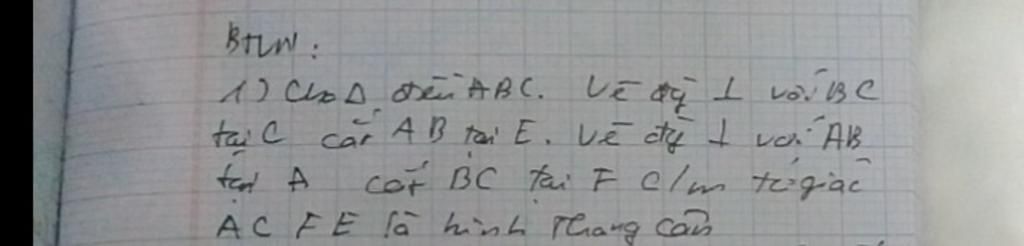 BTVN:
1) Cho Δ đều ABC. Vẽ đg ⊥ với BC
tại C cắt AB tại E. Vẽ đg ⊥ với AB
tại A cắt BC tại F C/m tứ giác
ACFE là hình thang cân